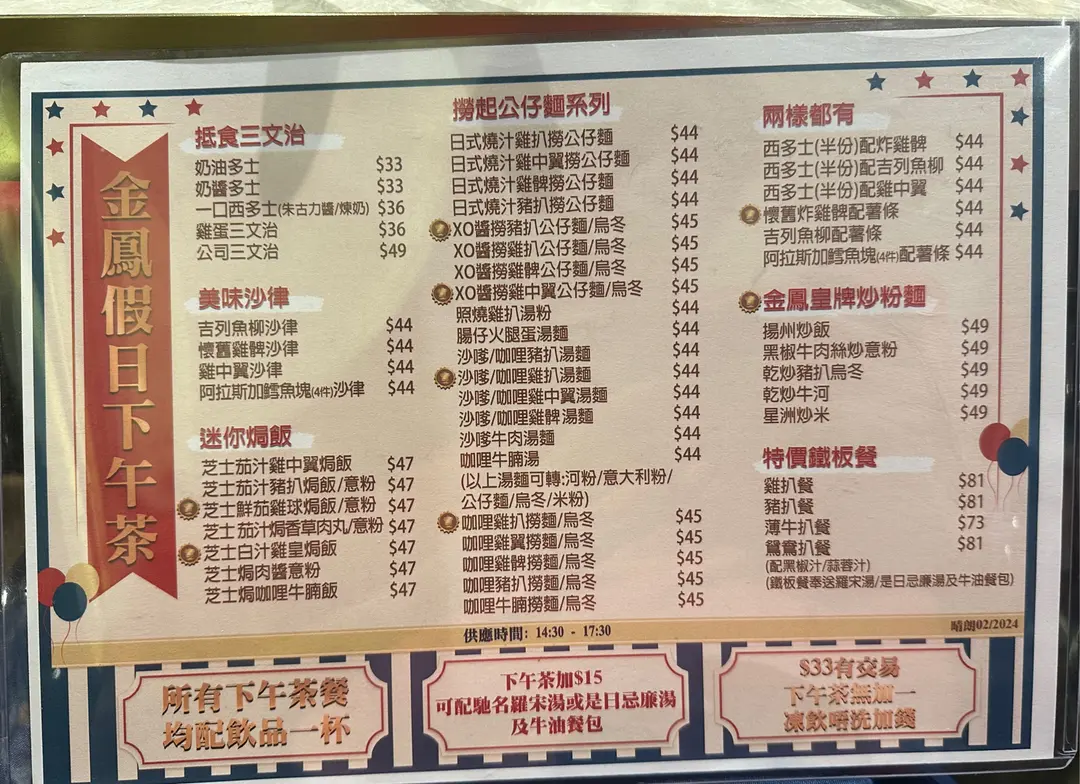 金鳳假日下午茶
抵食三文治
奶油多士 $33
奶醬多士 $33
一口西多士(朱古力醬/煉奶) $36
雞蛋三文治 $36
公司三文治 $49
美味沙律
吉列魚柳沙律 $44
懷舊雞髀沙律 $44
雞中翼沙律 $44
阿拉斯加鱈魚塊(4件)沙律 $44
迷你焗飯
芝士茄汁雞中翼焗飯 $47
芝士茄汁豬扒焗飯/意粉 $47
芝士鮮茄雞球焗飯/意粉 $47
芝士茄汁焗香草肉丸/意粉 $47
芝士白汁雞皇焗飯 $47
芝士焗肉醬意粉 $47
芝士焗咖喱牛腩飯 $47
撈起公仔麵系列
日式燒汁雞扒撈公仔麵 $44
日式燒汁雞中翼撈公仔麵 $44
日式燒汁雞髀撈公仔麵 $44
日式燒汁豬扒撈公仔麵 $44
XO醬撈豬扒公仔麵/烏冬 $45
XO醬撈雞扒公仔麵/烏冬 $45
XO醬撈雞髀公仔麵/烏冬 $45
XO醬撈雞中翼公仔麵/烏冬 $45
照燒雞扒湯粉 $44
腸仔火腿蛋湯麵 $44
沙嗲/咖喱豬扒湯麵 $44
沙嗲/咖喱雞扒湯麵 $44
沙嗲/咖喱雞中翼湯麵 $44
沙嗲/咖喱雞髀湯麵 $44
沙嗲牛肉湯麵 $44
咖喱牛腩湯 $44
(以上湯麵可轉:河粉/意大利粉/
公仔麵/烏冬/米粉)
咖喱雞扒撈麵/烏冬 $45
咖喱雞翼撈麵/烏冬 $45
咖喱雞髀撈麵/烏冬 $45
咖喱豬扒撈麵/烏冬 $45
咖喱牛腩撈麵/烏冬 $45
兩樣都有
西多士(半份)配炸雞髀 $44
西多士(半份)配吉列魚柳 $44
西多士(半份)配雞中翼 $44
懷舊炸雞髀配薯條 $44
吉列魚柳配薯條 $44
阿拉斯加鱈魚塊(4件)配薯條 $44
金鳳皇牌炒粉麵
揚州炒飯 $49
黑椒牛肉絲炒意粉 $49
乾炒豬扒烏冬 $49
乾炒牛河 $49
星洲炒米 $49
特價鐵板餐
雞扒餐 $81
豬扒餐 $81
薄牛扒餐 $73
鴛鴦扒餐 $81
(配黑椒汁/蒜蓉汁)
(鐵板餐奉送羅宋湯/是日忌廉湯及牛油餐包)
供應時間: 14:30 - 17:30
晴朗02/2024
所有下午茶餐
均配飲品一杯
下午茶加$15
可配馳名羅宋湯或是日忌廉湯
及牛油餐包
$33有交易
下午茶無加一
凍飲唔洗加錢